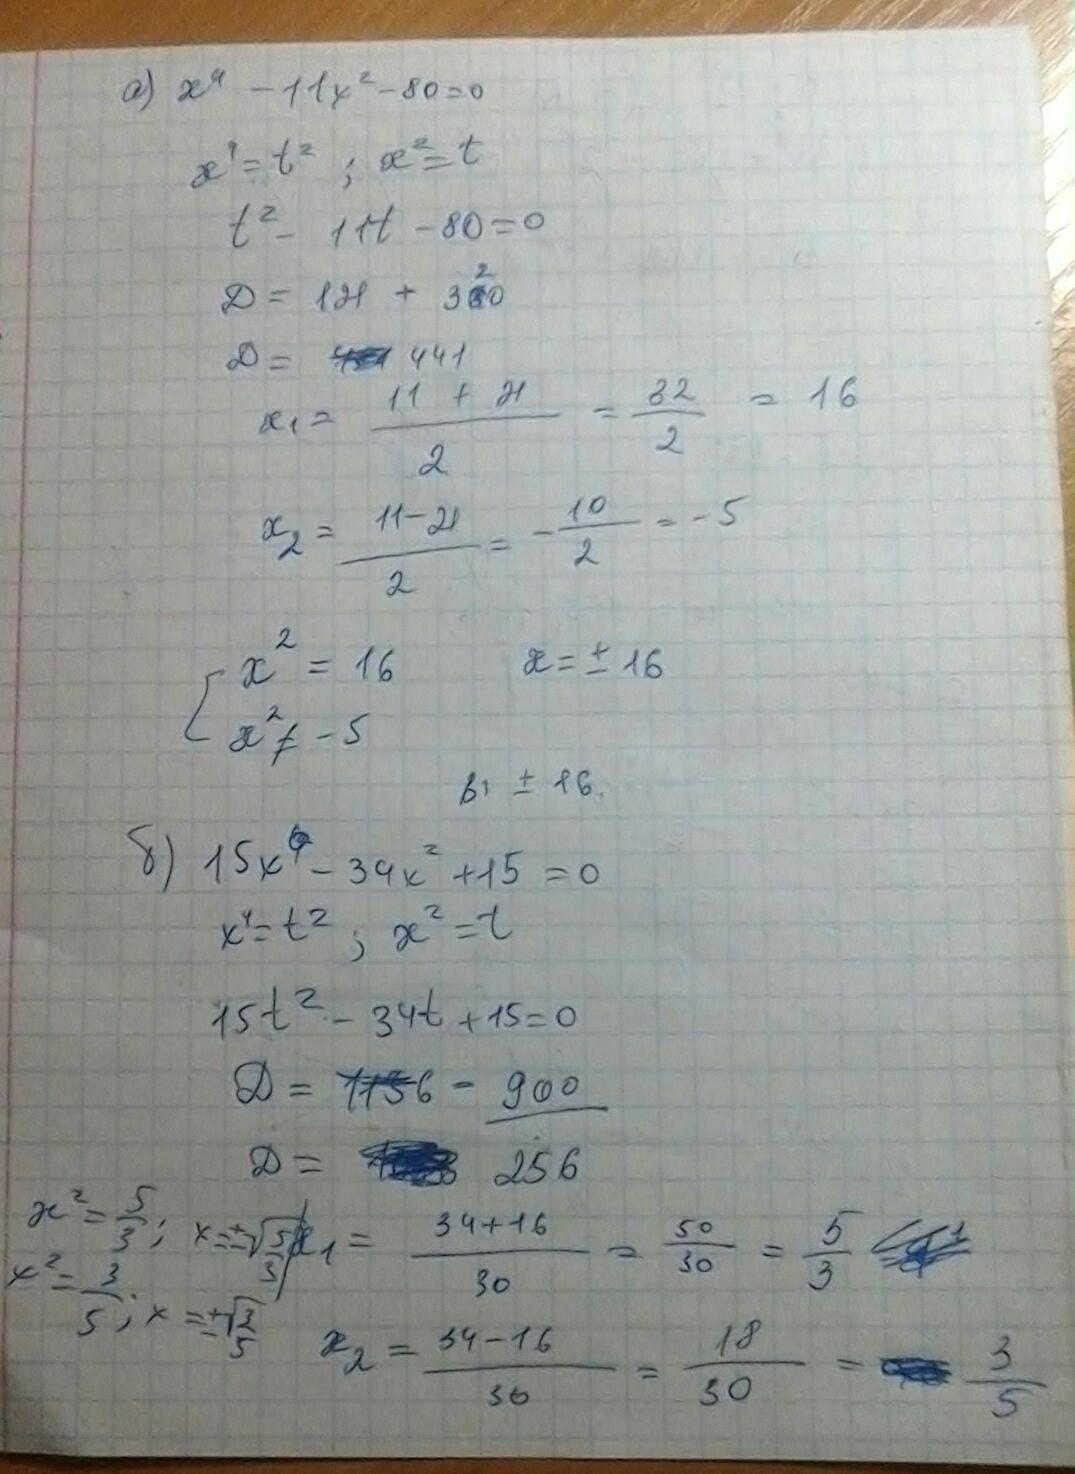 а) x⁴ - 11x² - 80 = 0
x⁴ = t² ; x² = t
t² - 11t - 80 = 0
D = 121 + 320
D = 441
x₁ = (11 + 21)/2 = 32/2 = 16
x₂ = (11 - 21)/2 = -10/2 = -5
[ x² = 16 x = ± 16
x² ≠ -5
В: ± 16.
б) 15x⁴ - 34x² + 15 = 0
x⁴ = t² ; x² = t
15t² - 34t + 15 = 0
D = 1156 - 900
D = 256
x² = 5/3 ; x = ±√(5/3)
x² = 3/5 ; x = ±√(3/5)
x₁ = (34 + 16)/30 = 50/30 = 5/3
x₂ = (34 - 16)/30 = 18/30 = 3/5